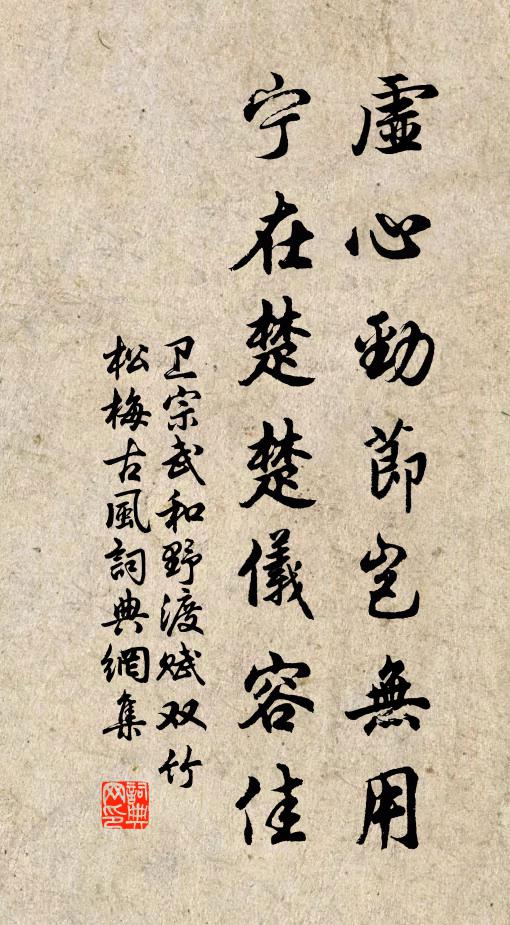 虛心勁節豈無用
宁在楚楚儀容佳
卫宗武和野渡赋双竹
松梅古風詞典網集
詞典
网印